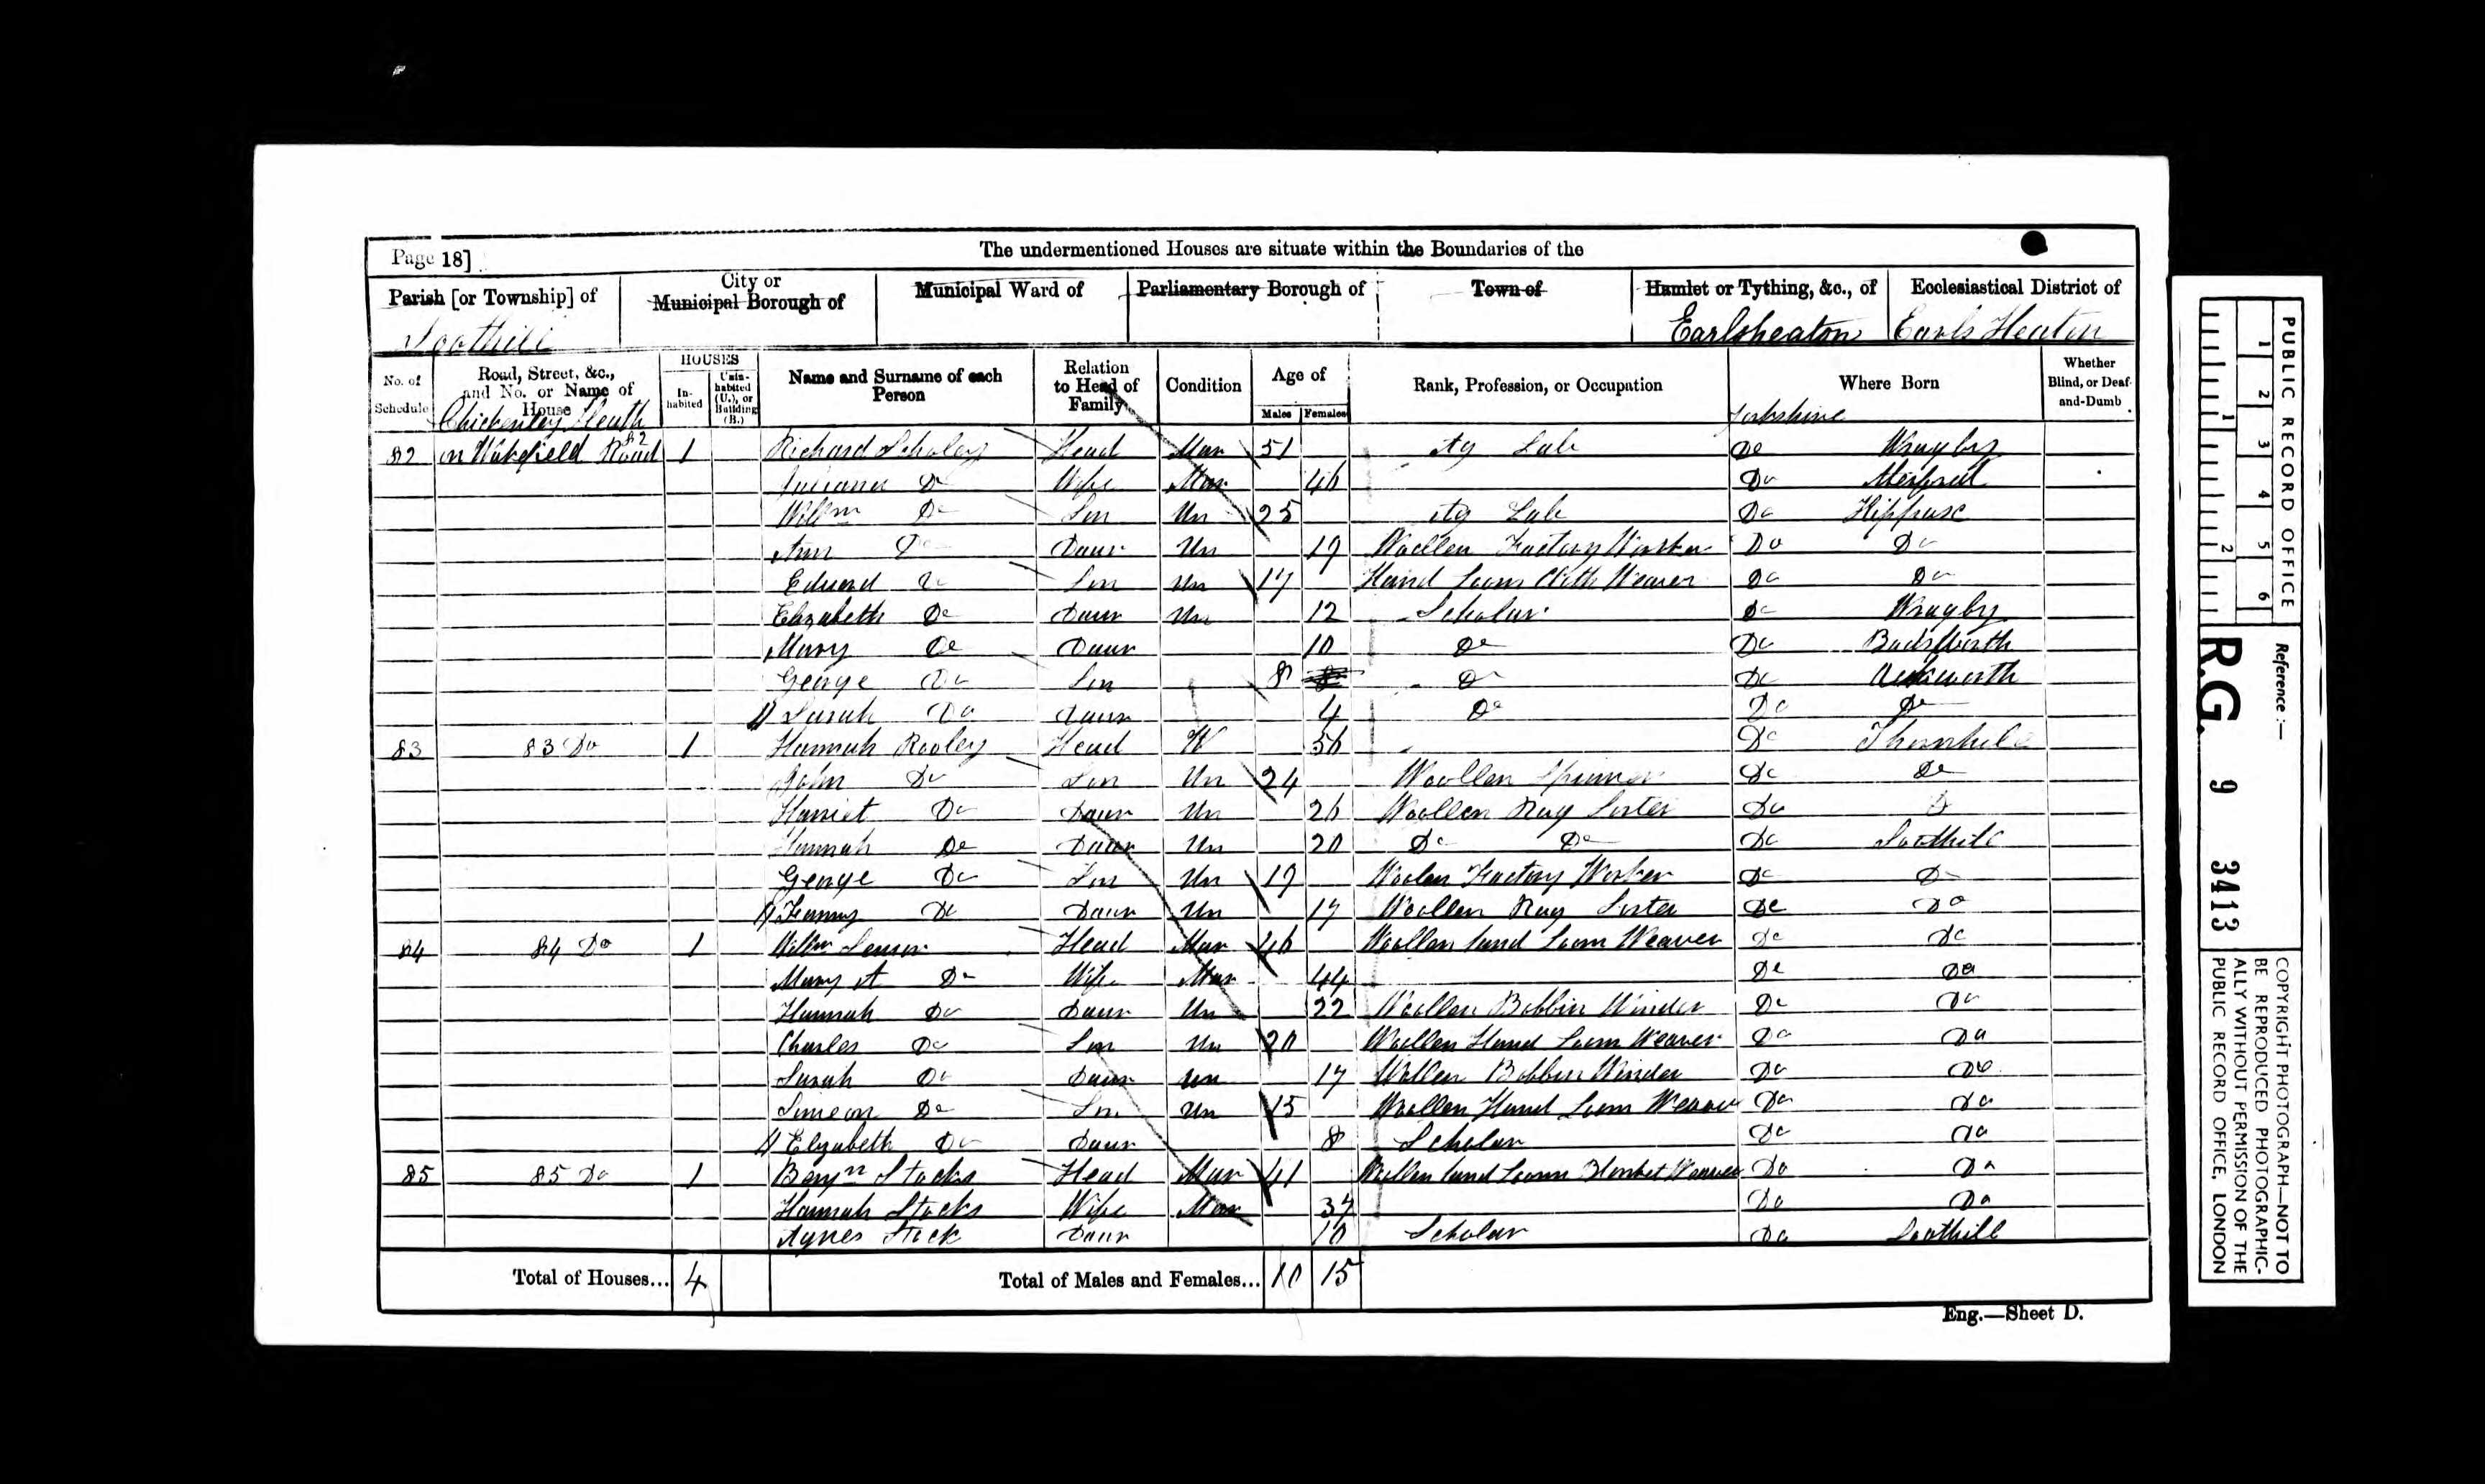 Page 18]
The undermentioned Houses are situate within the Boundaries of the
Parish [or Township] of
City or Municipal Borough of
Municipal Ward of
Parliamentary Borough of
Town of
Hamlet or Tything, &c., of
Ecclesiastical District of
Soothill
Earlsheaton
Earls Heaton
No. of Schedule
Road, Street, &c., and No. or Name of House
HOUSES
In-habited
Unin-habited (U.), or Building (B.)
Name and Surname of each Person
Relation to Head of Family
Condition
Age of
Males
Females
Rank, Profession, or Occupation
Where Born
Whether Blind, or Deaf-and-Dumb
Chickenley Heath
Yorkshire
82 on Wakefield Road 82 1 Richard Scholey Head Mar 51 Ag Lab Do Wragby
Juliana Do Wife Mar 46 Do
Willm Do Son Un 25 Ag Lab Do
Ann Do Daur Un 19 Woollen Factory Worker Do Do
Edward Do Son Un 17 Hand Loom Cloth Weaver Do Do
Elizabeth Do Daur Un 12 Scholar Do Wragby
Mary Do Daur 10 Do Do Badsworth
George Do Son 8 Do Do Ackworth
Sarah Do Daur 4 Do Do Do
83 83 Do 1 Hannah Rooley Head W 56 Do Thornhill
John Do Son Un 24 Woollen Spinner Do Do
Harriet Do Daur Un 26 Woollen Rag Sorter Do Do
Hannah Do Daur Un 20 Do Do Do Soothill
George Do Son Un 19 Woolen Factory Worker Do Do
Fanny Do Daur Un 17 Woollen Rag Sorter Do Do
84 84 Do 1 Willm Senior Head Mar 46 Woollen hand Loom Weaver Do Do
Mary A Do Wife Mar 44 Do Do
Hannah Do Daur Un 22 Woollen Bobbin Winder Do Do
Charles Do Son Un 20 Woollen Hand Loom Weaver Do Do
Sarah Do Daur Un 17 Wollen Bobbin Winder Do Do
Simeon Do Son Un 15 Woollen Hand Loom Weaver Do Do
Elizabeth Do Daur 8 Scholar Do Do
85 85 Do 1 Benjn Stocks Head Mar 41 Wollen hand Loom Blanket Weaver Do Do
Hannah Stocks Wife Mar 37 Do Do
Agnes Stock Daur 10 Scholar Do Soothill
Total of Houses... 4
Total of Males and Females... 10 15
Eng.—Sheet D.
PUBLIC RECORD OFFICE
1 2 3 4 5 6
1 2
Reference :—
R.G. 9 3413
COPYRIGHT PHOTOGRAPH—NOT TO BE REPRODUCED PHOTOGRAPHIC-ALLY WITHOUT PERMISSION OF THE PUBLIC RECORD OFFICE, LONDON